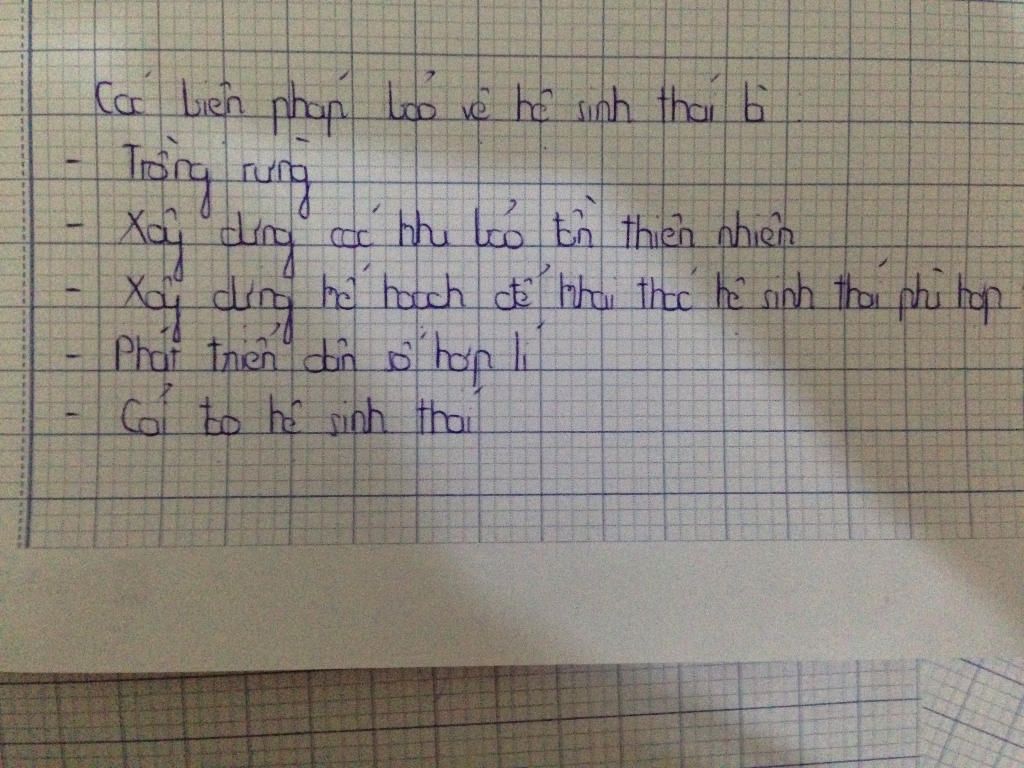 Các biện pháp bảo vệ hệ sinh thái là
- Trồng rừng
- Xây dựng các khu bảo tồn thiên nhiên
- Xây dựng kế hoạch để khai thác hệ sinh thái phù hợp
- Phát triển dân số hợp lí
- Cải tạo hệ sinh thái